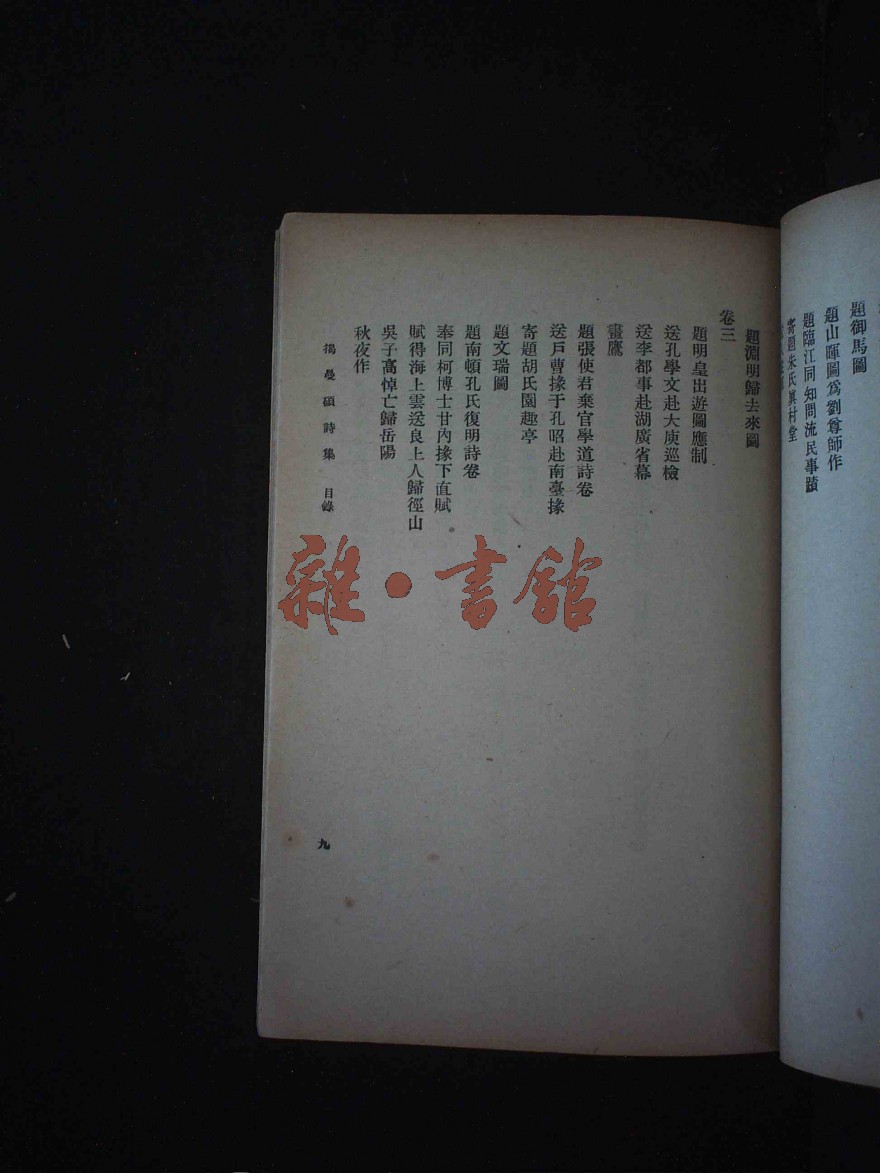 題御馬圖
題山暉圖爲劉尊師作
題臨江同知問流民事蹟
寄題朱氏眞村堂
題淵明歸去來圖
卷三
題明皇出遊圖應制
送孔學文赴大庾巡檢
送李都事赴湖廣省幕
畫鷹
題張使君棄官學道詩卷
送戶曹掾于孔昭赴南臺掾
寄題胡氏園趣亭
題文瑞圖
題南頓孔氏復明詩卷
奉同柯博士甘內掾下直賦
賦得海上雲送良上人歸徑山
吳子高悼亡歸岳陽
秋夜作
揭曼碩詩集 目錄
九
雜·書館